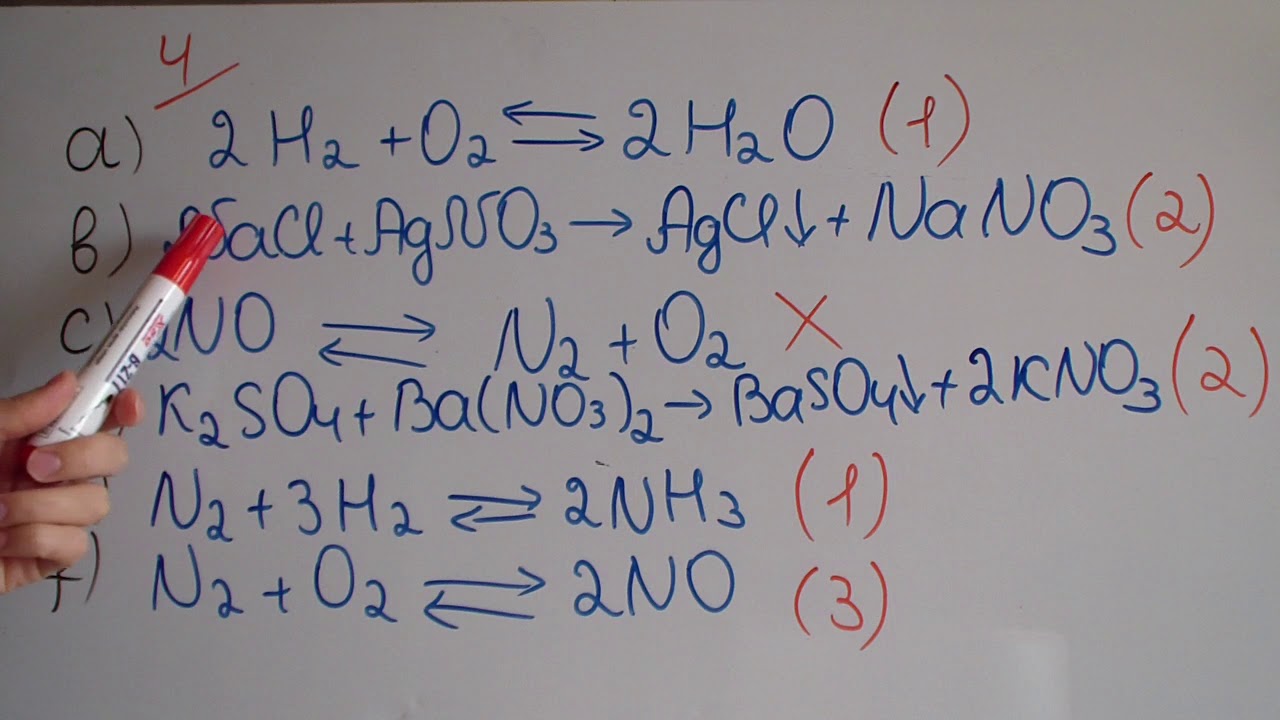 4
a) 2H₂ + O₂ ⇄ 2H₂O (1)
b) NaCl + AgNO₃ → AgCl↓ + NaNO₃ (2)
c) 2NO ⇄ N₂ + O₂ ×
K₂SO₄ + Ba(NO₃)₂ → BaSO₄↓ + 2KNO₃ (2)
N₂ + 3H₂ ⇄ 2NH₃ (1)
f) N₂ + O₂ ⇄ 2NO (3)
B-211